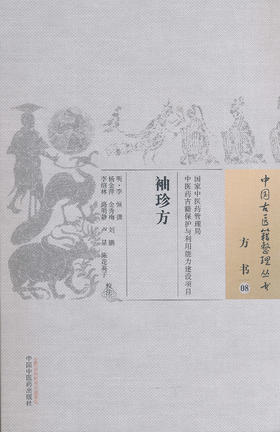 中国古医籍整理丛书
方书
08
国家中医药管理局
中医药古籍保护与利用能力建设项目
袖珍方
明·李恒 撰
杨金萍 金秀梅 刘鹏
李绍林 路明静 卢星 陈花英子 校注
中国中医药出版社